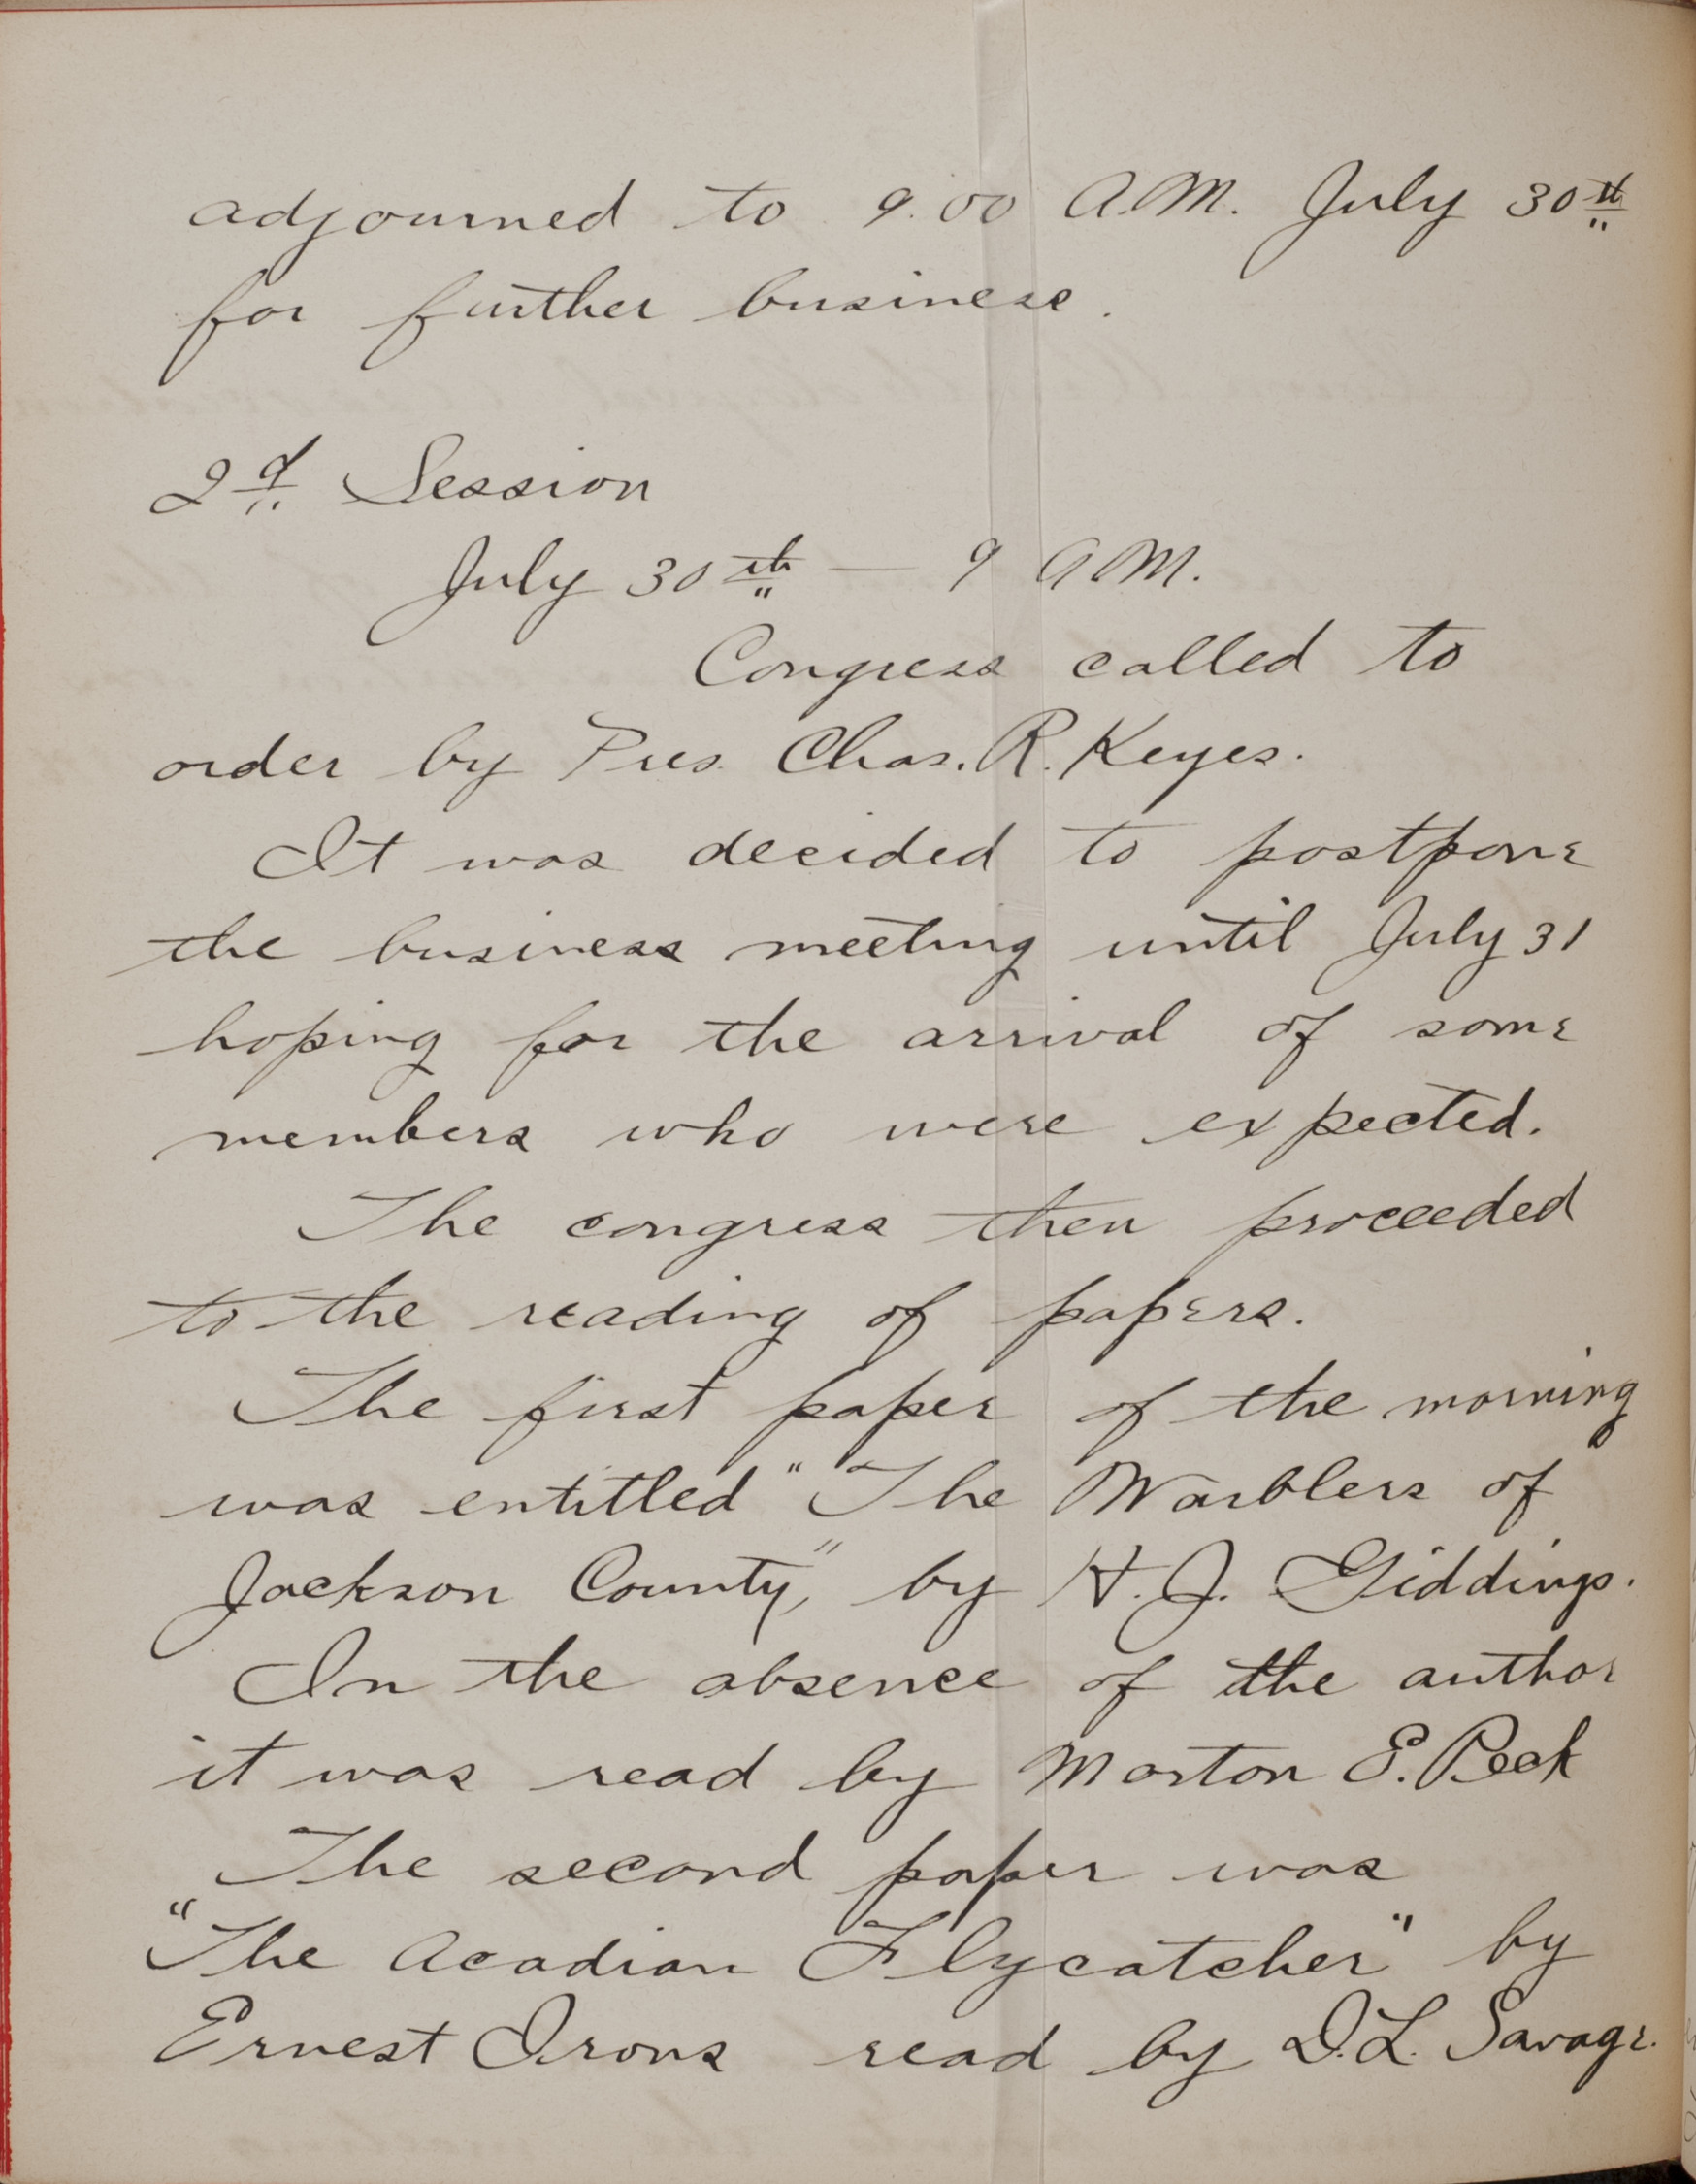 adjourned to 9.00 A.M. July 30th
for further business.
2d Session
July 30th — 9 A M.
Congress called to
order by Pres. Chas. R. Keyes.
It was decided to postpone
the business meeting until July 31
hoping for the arrival of some
members who were expected.
The congress then proceeded
to the reading of papers.
The first paper of the morning
was entitled "The Warblers of
Jackson County," by H. J. Giddings.
In the absence of the author
it was read by Morton E. Peck
The second paper was
"The Acadian Flycatcher" by
Ernest Irons read by D. L. Savage.